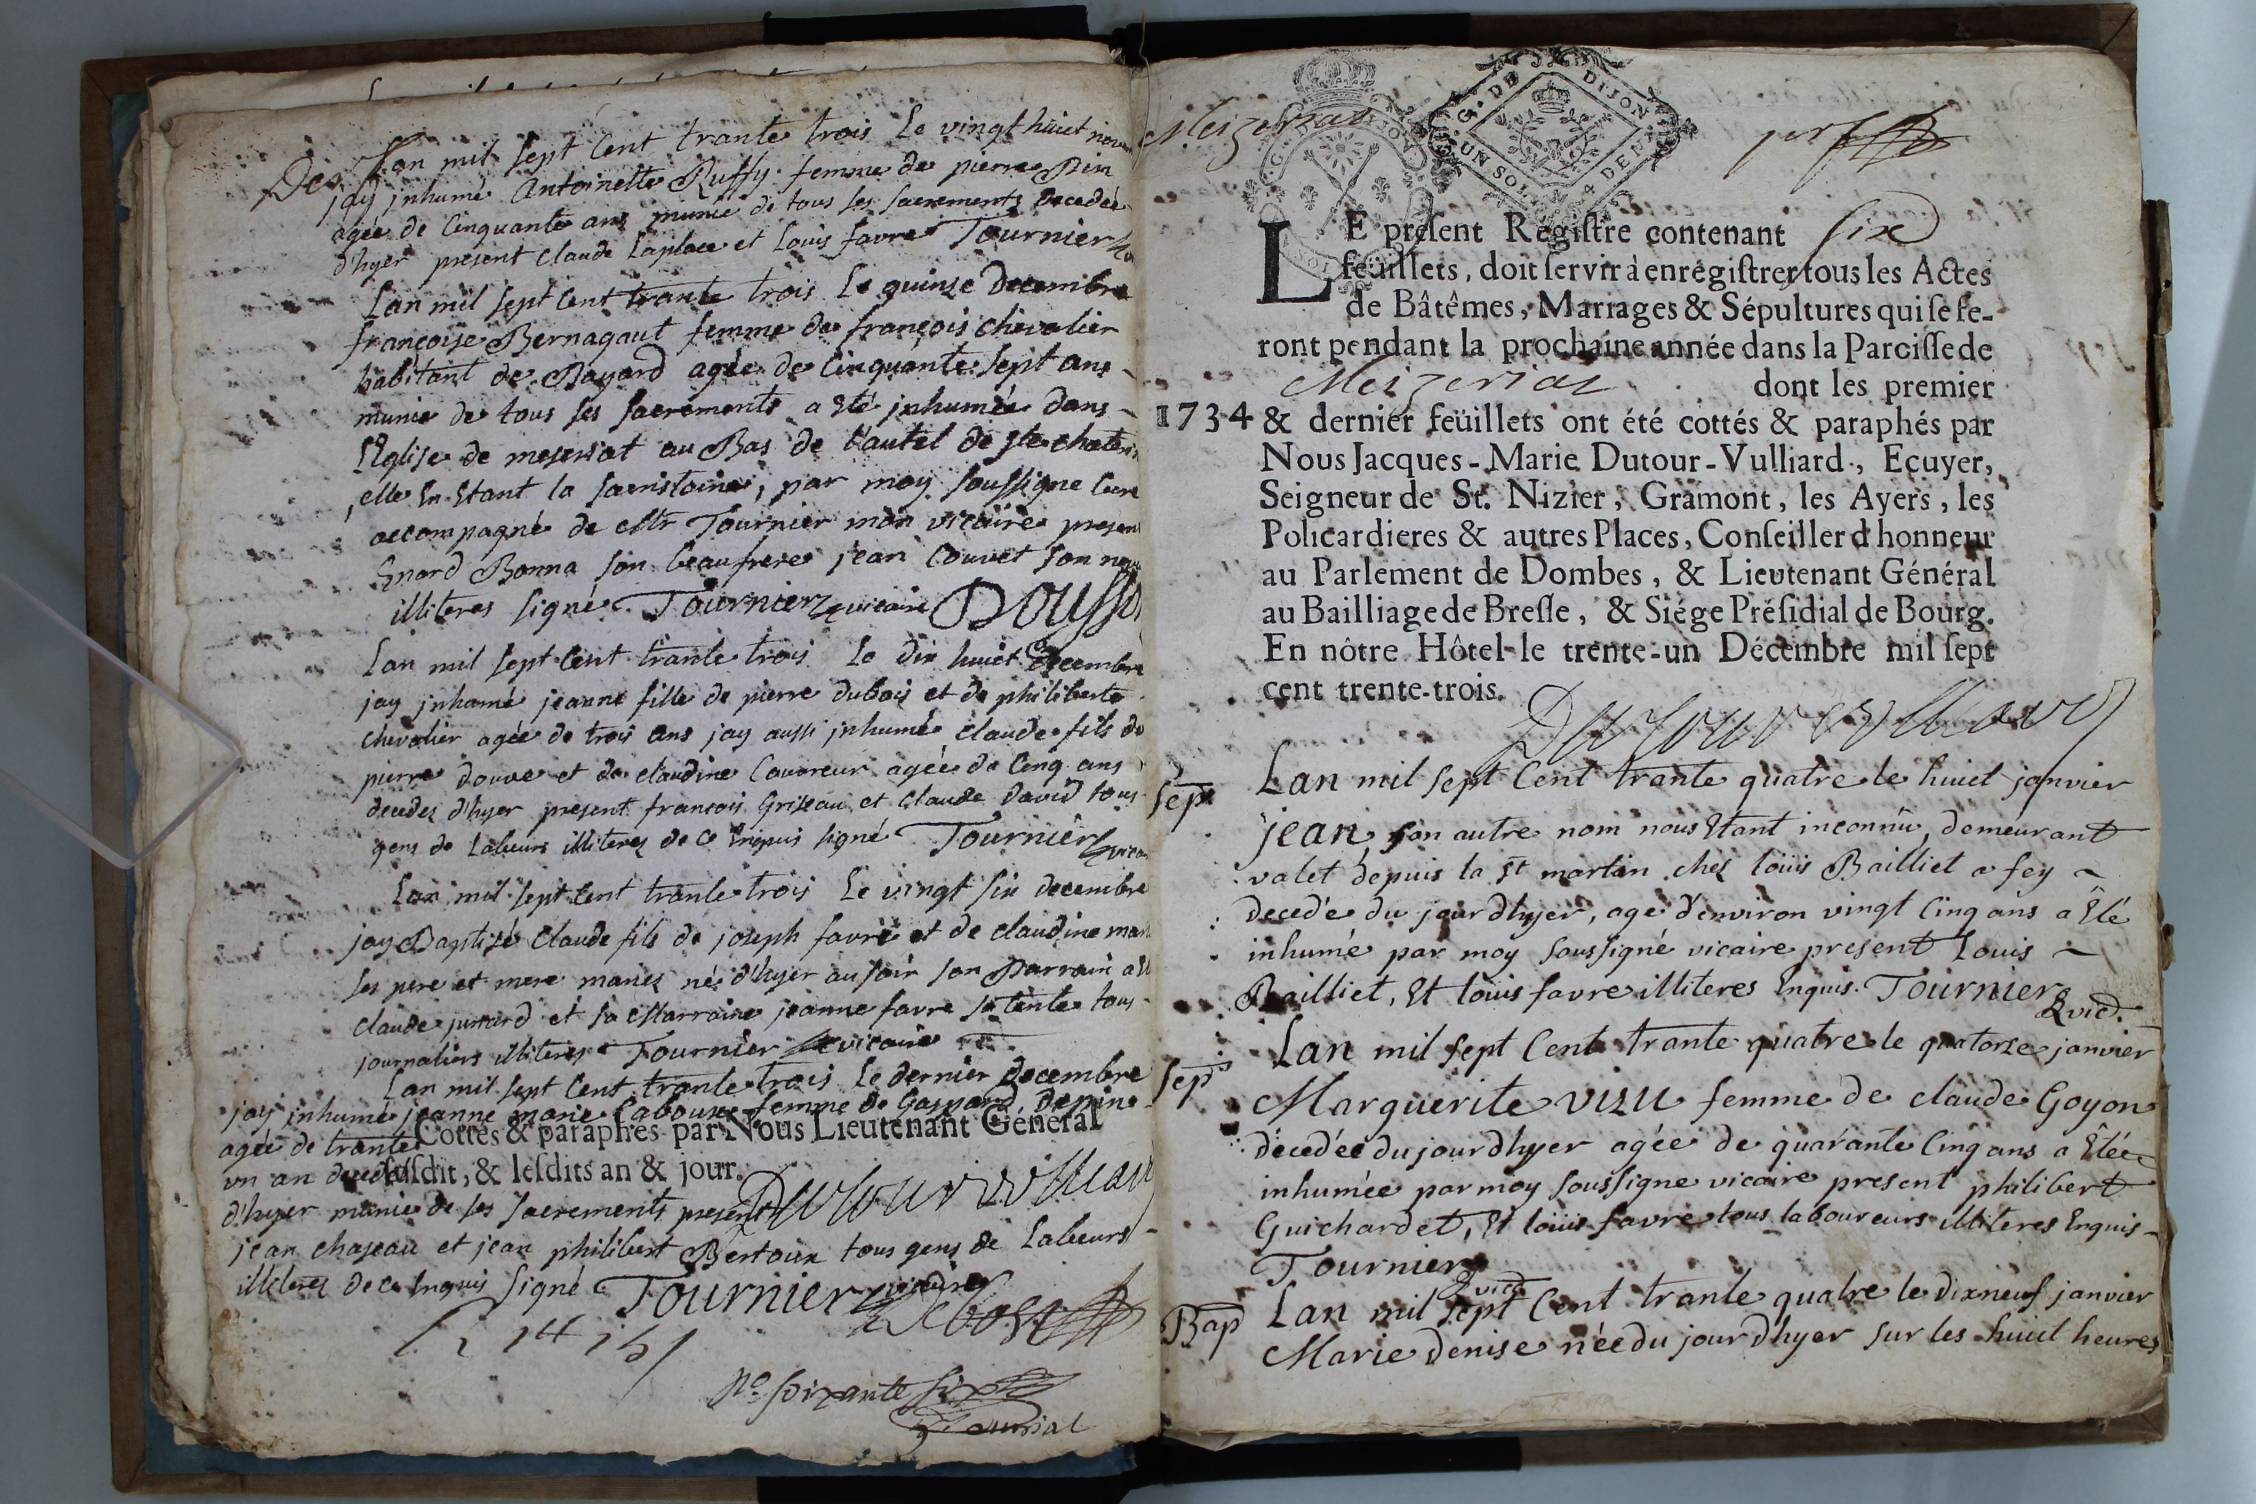 Des Lan mil sept Cent trante trois Le vingt huiet
jay jnhumé Antoinette Ruffy femme de pierre
agée de Cinquante ans munie de tous ses sacrements Decedée
d'hyer present Claude Laplace et Louis favre Tournier
Lan mil sept Cent trante trois Le quinze Decembre
francoise Bernagaut femme de françois chevalier
habitant de Bayard agée de Cinquante sept ans
munie de tous ses sacrements a Eté jnhumée Dans
l'Eglise de meseriat au Bas de l'autel de ste
elle En Etant la sacristaine, par moy soussigne Cure
accompagné de Mtr Tournier mon vicaire present
Enard Bonna son beaufrere jean Couvet son
illiteres signé Tournier vicaire
Lan mil sept Cent trante trois Le Dix huiet Decembre
jay jnhumé jeanne fille de pierre dubois et de philiberte
chevalier agée de trois ans jay aussi jnhumé claude fils de
pierre douve et de claudine Couvreur agée de Cinq ans
decedez d'hyer present francois Griseau et Claude David tous
gens de Labeurs illiteres de ce Enquis signé Tournier
Lan mil sept Cent trante trois Le vingt six decembre
jay Baptisé Claude fils de joseph favre et de claudine
ses pere et mere mariez né d'hyer au soir son Parrain a
claude et sa Marraine jeanne favre sa tente tous
journaliers illiteres Tournier vicaire
Lan mil sept Cent trante trois Le dernier Decembre
jay inhumé jeanne marie Laboure femme de Gaspard
agée de trante Cottés & paraphés par Nous Lieutenant Général
un an susdit, & lesdits an & jour.
d'hyer munie de ses sacrements present Dutour vulliard
jean chaseau et jean philibert Bertoux tous gens de Labeurs
illiteres de ce Enquis signé Tournier vicaire
No soixante six
Meizeriat
G. DE DIJON
UN SOL 4 DEN.
LE présent Régistre contenant six
feüillets, doit servir à enrégistrer tous les Actes
de Bâtêmes, Mariages & Sépultures qui se fe-
ront pendant la prochaine année dans la Paroisse de
Meizeriat dont les premier
1734 & dernier feüillets ont été cottés & paraphés par
Nous Jacques-Marie Dutour-Vulliard, Ecuyer,
Seigneur de St. Nizier, Gramont, les Ayers, les
Policardieres & autres Places, Conseiller d'honneur
au Parlement de Dombes, & Lieutenant Général
au Bailliage de Bresse, & Siége Présidial de Bourg.
En nôtre Hôtel le trente-un Décembre mil sept
cent trente-trois.
Dutour vulliard
sep. Lan mil sept Cent trante quatre le huiet janvier
jean son autre nom nous Etant inconnû, demeurant
valet depuis la St martin chez loüis Bailliet a fey
decedé du jour d'hyer, agé d'environ vingt Cinq ans a Eté
inhumé par moy soussigné vicaire present Louis
Bailliet, Et loüis favre illiteres Enquis. Tournier
vic.
sep. Lan mil sept Cent trante quatre le quatorze janvier
Marguerite vizu femme de claude Goyon
décedée du jour d'hyer agée de quarante Cinq ans a Etée
inhumée par moy soussigne vicaire present philibert
Guichardet, Et loüis favre tous laboureurs illiteres Enquis
Tournier
vic.
Bap Lan mil sept Cent trante quatre le dixneuf janvier
Marie denise née du jour d'hyer sur les huiet heures